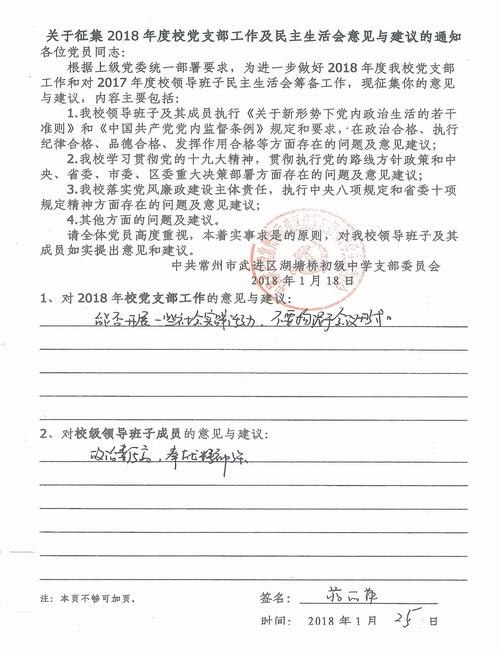 关于征集 2018 年度校党支部工作及民主生活会意见与建议的通知
各位党员同志：
根据上级党委统一部署要求，为进一步做好 2018 年度我校党支部
工作和对 2017 年度校领导班子民主生活会筹备工作，现征集你的意见
与建议，内容主要包括：
1.我校领导班子及其成员执行《关于新形势下党内政治生活的若干
准则》和《中国共产党党内监督条例》规定和要求，在政治合格、执行
纪律合格、品德合格、发挥作用合格等方面存在的问题及意见建议；
2.我校学习贯彻党的十九大精神，贯彻执行党的路线方针政策和中
央、省委、市委、区委重大决策部署方面存在的问题及意见建议；
3.我校落实党风廉政建设主体责任，执行中央八项规定和省委十项
规定精神方面存在的问题及意见建议；
4.其他方面的问题及建议。
请全体党员高度重视，本着实事求是的原则，对我校领导班子及其
成员如实提出意见和建议。
中共常州市武进区湖塘桥初级中学支部委员会
2018 年 1 月 18 日
1、对 2018 年校党支部工作的意见与建议：
能否开展一些社会实践活动，不要拘泥于会议形式。
2、对校级领导班子成员的意见与建议：
政治素质高，奉献精神
注：本页不够可加页。
签名：
时间： 2018 年 1 月 25 日